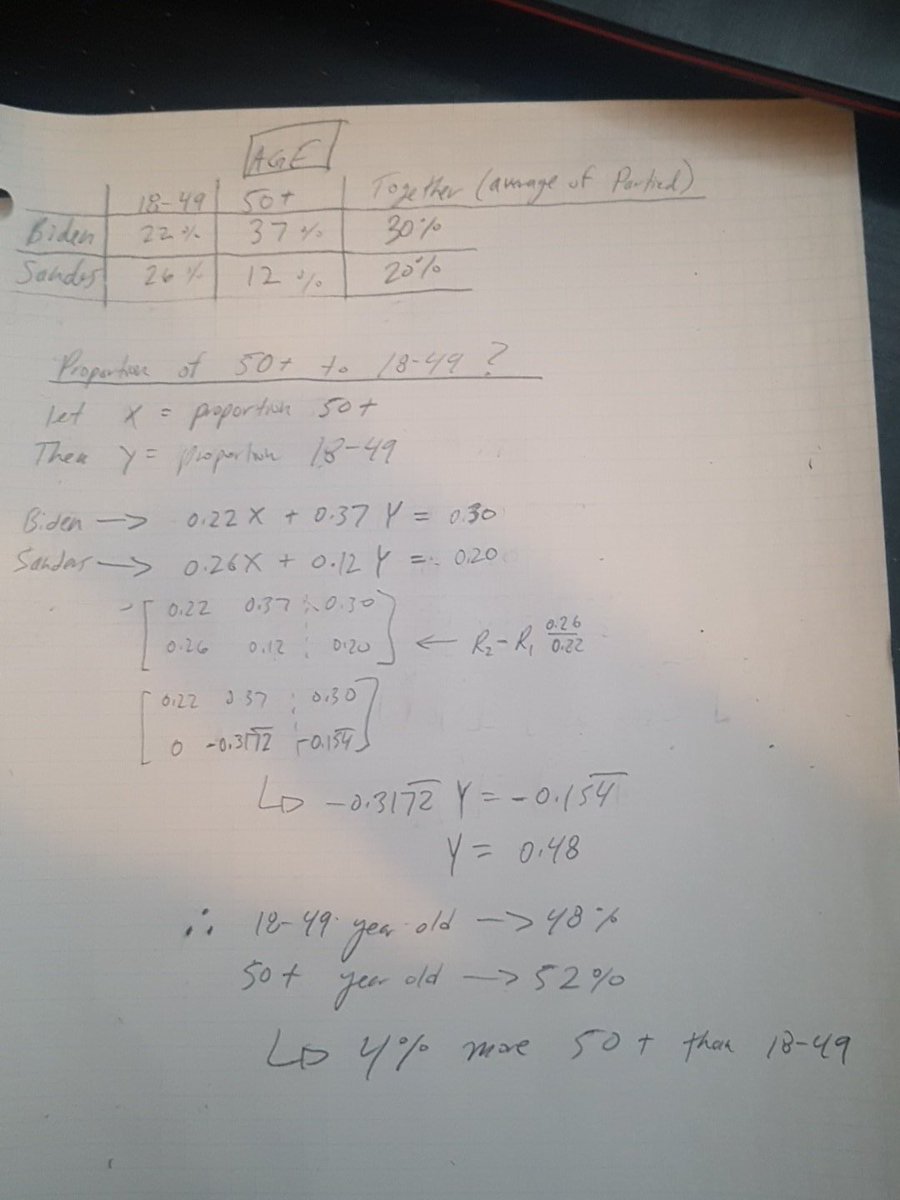 AGE
18-49 50+ Together (average of Partied)
Biden 22% 37% 30%
Sandes 26% 12% 20%
Proportion of 50+ to 18-49?
Let X = proportion 50+
Then Y = proportion 18-49
Biden → 0.22X + 0.37Y = 0.30
Sandes → 0.26X + 0.12Y = 0.20
[0.22 0.37 : 0.30]
[0.26 0.12 : 0.20] ← R₂-R₁ 0.26/0.22
[0.22 0.37 : 0.30]
[0 -0.317̅2̅ : -0.15̅4̅]
↳ -0.317̅2̅ Y = -0.15̅4̅
Y = 0.48
∴ 18-49 year old → 48%
50+ year old → 52%
↳ 4% more 50+ than 18-49